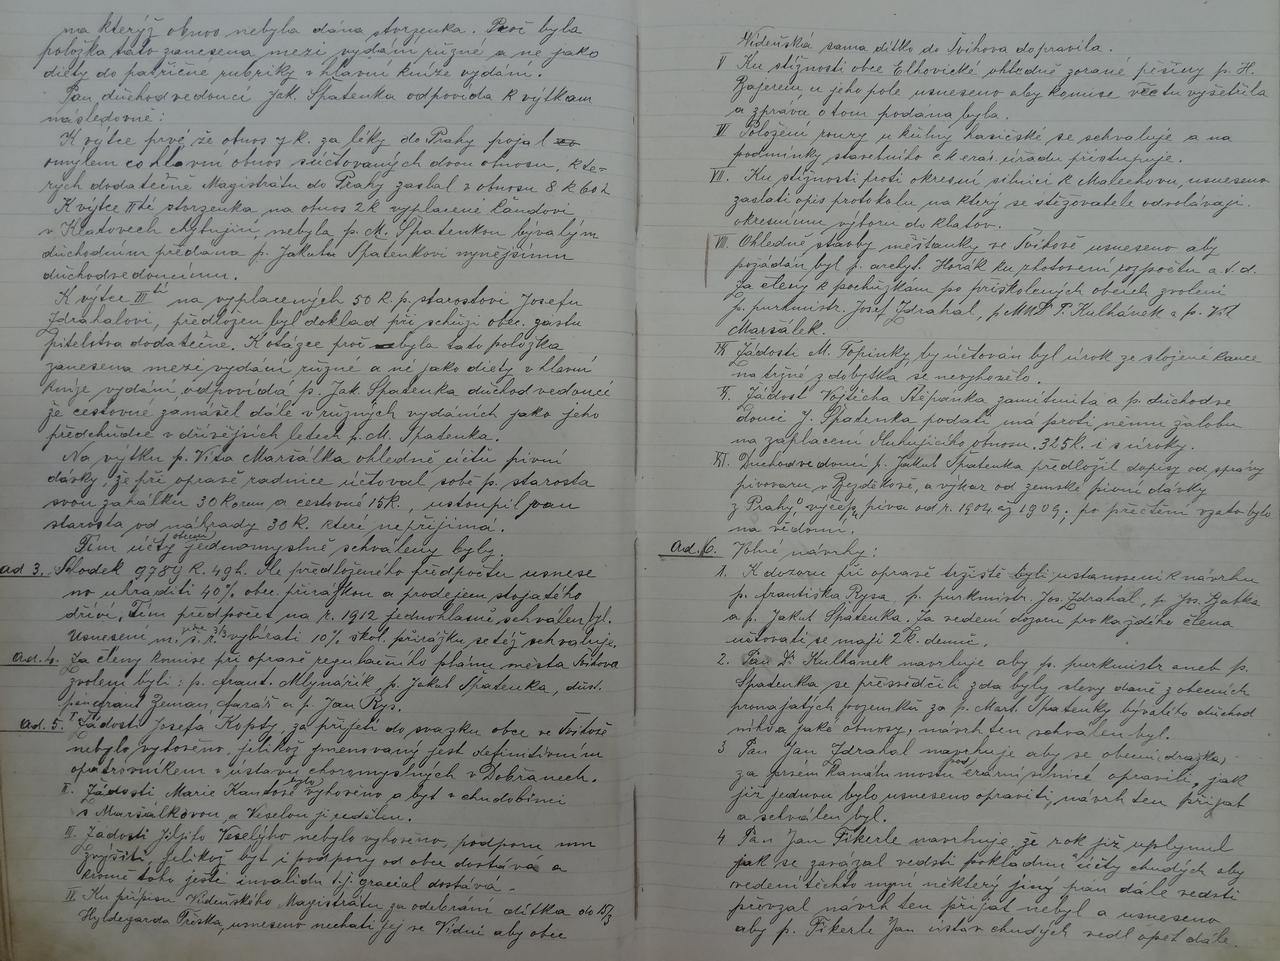 na kterýž obnos nebyla dána stvrzenka. Proč byla
položka tato zanesena mezi vydání různé a ne jako
diéty do patřičné rubriky v hlavní knize vydání.
Pan důchodvedoucí Jak. Špatenka odpovídá k výtkám
následovně:
K výtce prvé že obnos 7 k. za léky do Prahy pojal
omylem co hlavní obnos součtovaných dvou obnosu, kte-
rých dodatečně Magistrátu do Prahy zaslal v obnosu 8 K 60 h
K výtce II té stvrzenka na obnos 2 k vyplacené Kandovi
v Klatovech chybující, nebyla p. M. Špatenkou bývalým
důchodním předána p. Jakubu Špatenkovi nynějšímu
důchodvedoucímu.
K výtce III tí na vyplacených 50 k. p. starostovi Josefu
Zdráhalovi, předložen byl doklad při schůzi obec. zastu
pitelstva dodatečně. K otázce proč byla tato položka
zanesena mezi vydání různé a né jako diéty v hlavní
knize vydání, odpovídá p. Jak. Špatenka důchodvedoucí
že cestovné zanášel dále v různých vydáních jako jeho
předchůdce v dřívějších letech p. M. Špatenka.
Na výtku p. Víta Maršálka ohledně účtu pivní
dávky, že při opravě radnice účtoval sobě p. starosta
svou zahálku 30 korun a cestovné 15 k., ustoupil pan
starosta od náhrady 30 k. které nepřijímá.
Tím účty obecní jednomyslně schváleny byly.
ad 3. Schodek 9789 k. 49 h. dle předloženého předpočtu usnese
no uhraditi 40% obec. přirážkou a prodejem stojatého
dříví. Tím předpočet na r. 1912 jednohlasně schválen byl.
Usnesení m. š. r. vybírati 10% škol. přirážku se též schvaluje.
ad. 4. Za členy komise při opravě regulačního plánu města Švihova
zvoleni byli: p. Frant. Mlynařík, p. Jakub Špatenka, důst.
pan Zeman, farář a p. Jan Rys.
ad. 5. I. Žádosti Josefa Kopsty, za přijetí do svazku obce ve Švihově
nebylo vyhověno, jelikož jmenovaný jest definitivním
opatrovníkem v ústavu choromyslných v Dobřanech.
II. Žádosti Marie Kantové bylo vyhověno a byt v chudobinci
s Maršálkovou a Veselou jí udělen.
III. Žádosti Jiljího Veselýho nebylo vyhověno, podporu mu
zvýšiti, jelikož byt i podpory od obce dostává a
kromě toho ještě invalidu t.j. gracial dostává.
IV. Ku přípisu Vídeňského Magistrátu za odebrání dítka do 15/3
Hyldegarda Tréska, usneseno nechati jej ve Vídni aby obec
Vídeňská sama dítko do Švihova dopravila.
V Ku stížnosti obce Elhovické ohledně zorané pěšiny p. H.
Bajerem u jeho pole usneseno aby komise věc tu vyšetřila
a zpráva o tom podána byla.
VI Položení roury u kůlny hasičské se schvaluje a na
podmínky stavebního c.k. erár. úřadu přistupuje.
VII. Ku stížnosti proti okresní silnici k Malechovu, usneseno
zaslati opis protokolu na který se stěžovatelé odvolávají
okresnímu výboru do Klatov.
VIII. Ohledně stavby měšťanky ve Švihově usneseno aby
požádán byl p. archyt. Horák ku zhotovení rozpočtu a t. d.
Za členy k pochůzkám po přiškolených obcích zvoleni
p. purkmistr. Josef Zdráhal, p. MUDr. P. Kulhánek a p. Vít
Maršálek.
IX. Žádosti M. Topinky, by účtován byl úrok ze složené kauce
na tržné z dobytka se nevyhovělo.
X. Žádost Vojtěcha Štěpánka zamítnuta a p. důchodve
doucí J. Špatenka podati má proti němu žalobu
na zaplacení dluhujícího obnosu 325 K. i s úroky.
XI. Důchodvedoucí p. Jakub Špatenka předložil dopisy od správy
pivovaru v Bezděkově, a výkaz od zemské pivní dávky
z Prahy, výčepu piva od r. 1904 až 1909; po přečtění vzato bylo
na vědomí.
ad. 6. Volné návrhy:
1. K dozoru při opravě tržiště byli ustanoveni k návrhu
p. Františka Rysa, p. purkmistr. Jos. Zdráhal, p. Jos. Babka
a p. Jakub Špatenka. Za vedení dozoru pro každého člena
účtovati se mají 2 k. denně.
2. Pan Dr. Kulhánek navrhuje aby p. purkmistr aneb p.
Špatenka se přesvědčili zda byly slevy daně z obecních
pronajatých pozemků za p. Mart. Špatenky bývalého důchod
ního a jaké obnosy, návrh ten schválen byl.
3 Pan Jan Zdráhal navrhuje aby se obecní (dražka)
za prvém kanálu mostu pod erární silnicí opravila, jak
již jednou bylo usneseno opraviti, návrh ten přijat
a schválen byl.
4 Pan Jan Fikerle navrhuje, že rok již uplynul
jak se zavázal vedsti pokladnu účty chudých aby
vedení těchto nyní některý jiný pán dále vedsti
převzal návrh ten přijat nebyl a usneseno
aby p. Fikerle Jan ústav chudých vedl opět dále.